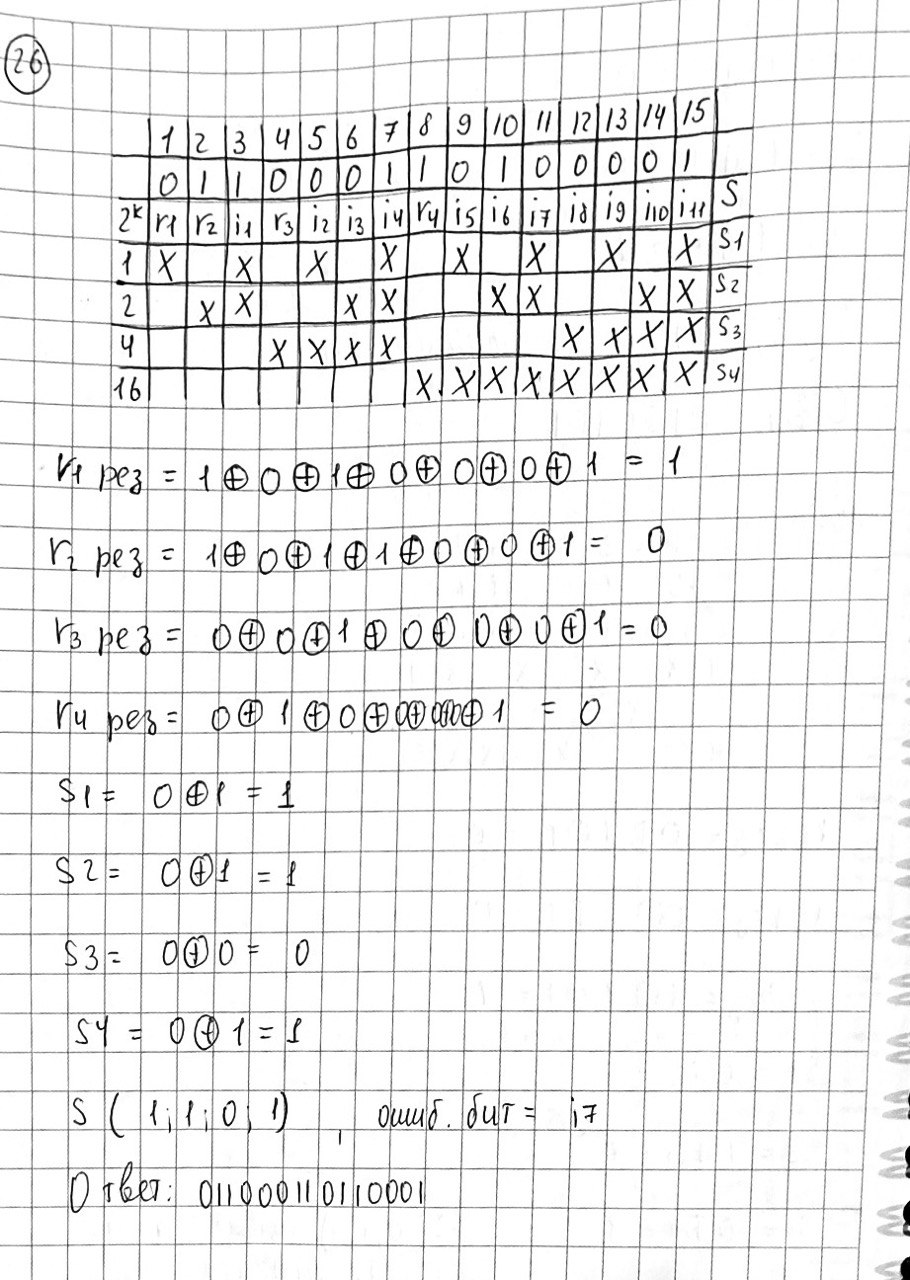 26
1 2 3 4 5 6 7 8 9 10 11 12 13 14 15
0 1 1 0 0 0 1 1 0 1 0 0 0 0 1
2^k r1 r2 i1 r3 i2 i3 i4 r4 i5 i6 i7 i8 i9 i10 i11 S
1 X X X X X X X X S1
2 X X X X X X X X S2
4 X X X X X X X X S3
16 X X X X X X X X S4
r1 рез = 1 ⊕ 0 ⊕ 1 ⊕ 0 ⊕ 0 ⊕ 0 ⊕ 1 = 1
r2 рез = 1 ⊕ 0 ⊕ 1 ⊕ 1 ⊕ 0 ⊕ 0 ⊕ 1 = 0
r3 рез = 0 ⊕ 0 ⊕ 1 ⊕ 0 ⊕ 0 ⊕ 0 ⊕ 1 = 0
r4 рез = 0 ⊕ 1 ⊕ 0 ⊕ 0 ⊕ ⊕ 1 = 0
S1 = 0 ⊕ 1 = 1
S2 = 0 ⊕ 1 = 1
S3 = 0 ⊕ 0 = 0
S4 = 0 ⊕ 1 = 1
S ( 1; 1; 0; 1) , ошиб. бит = i7
Ответ: 011000110110001